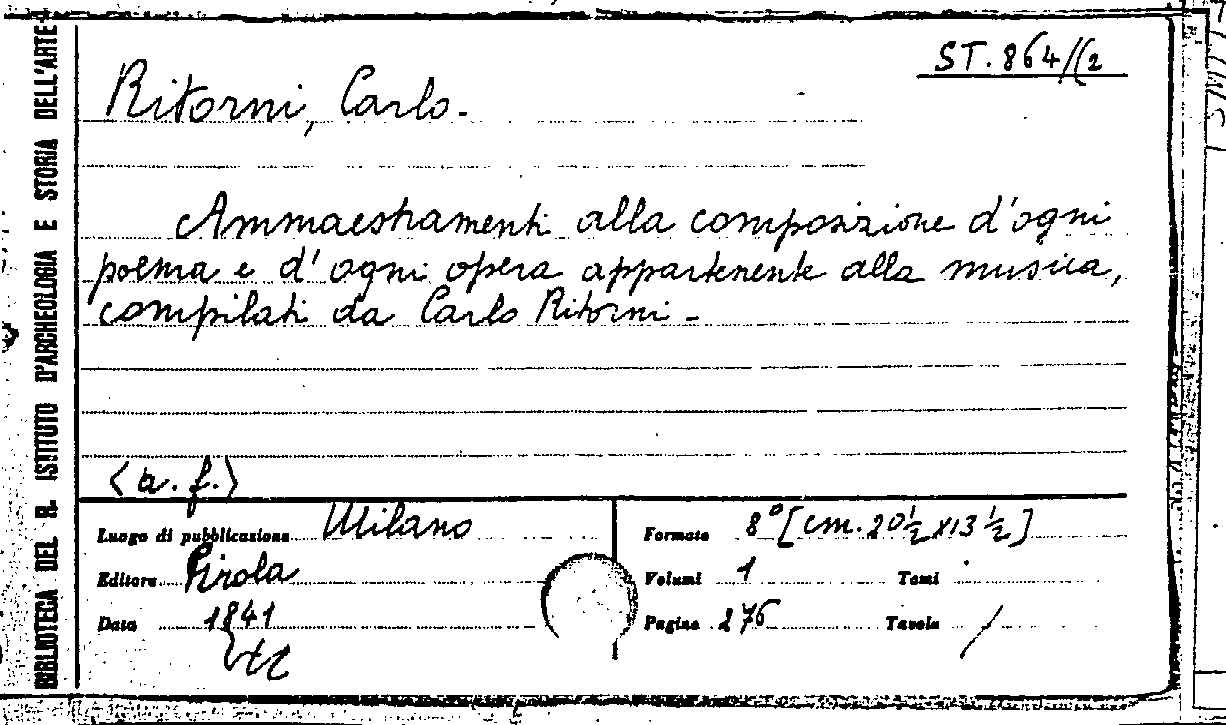 BIBLIOTECA DEL R. ISTITUTO D'ARCHEOLOGIA E STORIA DELL'ARTE
ST. 864/(2
Ritorni, Carlo.
Ammaestramenti alla composizione d'ogni
poema e d'ogni opera appartenente alla musica,
compilati da Carlo Ritorni -
<a. f.>
Luogo di pubblicazione Milano
Editore Pirola
Data 1841
Formato 8° [cm. 20½ x13½]
Volumi 1 Tomi
Pagine 276 Tavole /